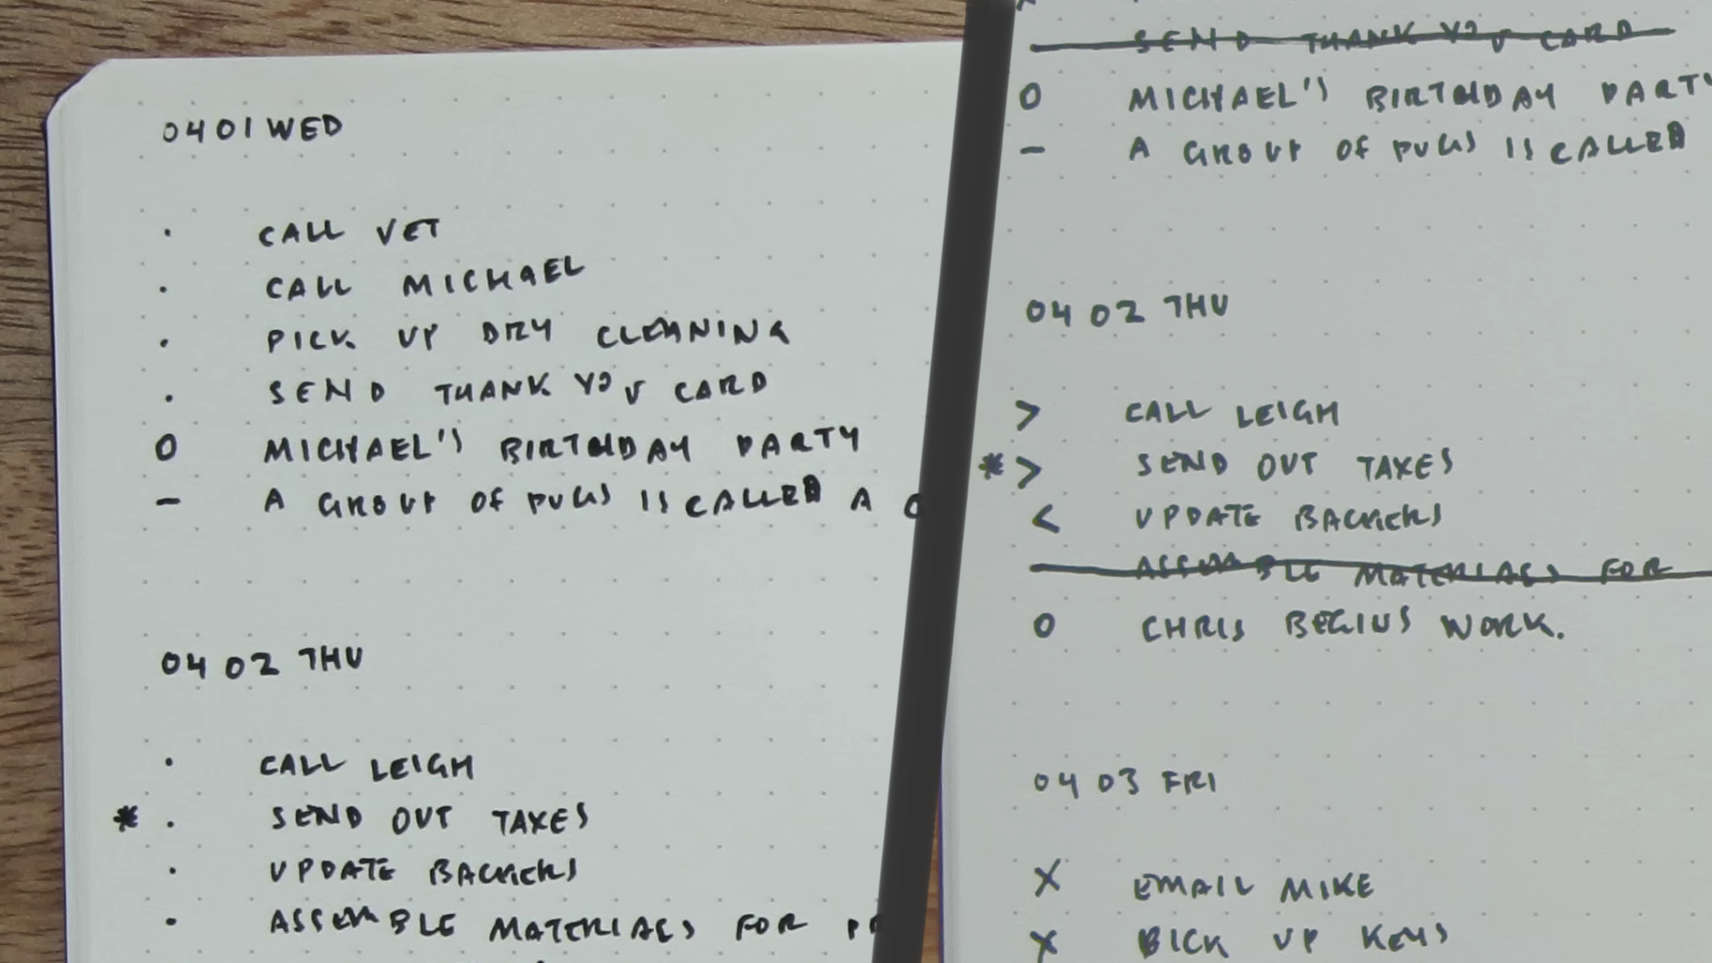 0401 WED
· CALL VET
· CALL MICHAEL
· PICK UP DRY CLEANING
· SEND THANK YOU CARD
O MICHAEL'S BIRTHDAY PARTY
– A GROUP OF PUGS IS CALLED A
04 02 THU
· CALL LEIGH
* · SEND OUT TAXES
· UPDATE BACKERS
· ASSEMBLE MATERIALS FOR
SEND THANK YOU CARD
O MICHAEL'S BIRTHDAY PARTY
– A GROUP OF PUGS IS CALLED
04 02 THU
> CALL LEIGH
* > SEND OUT TAXES
< UPDATE BACKERS
ASSEMBLE MATERIALS FOR
O CHRIS BEGINS WORK.
04 03 FRI
X EMAIL MIKE
X PICK UP KEYS